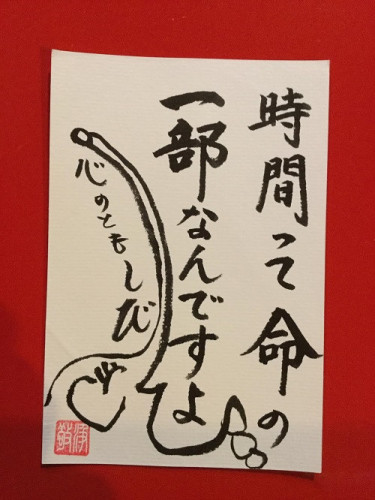 時間って命の
一部なんですよ
心のともしび